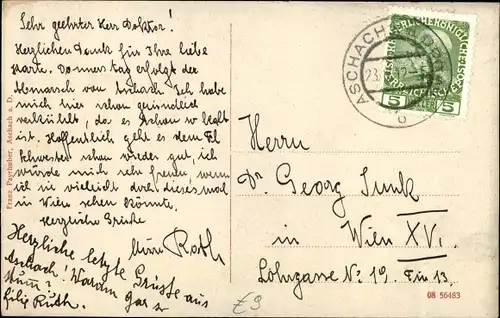 Sehr geehrter Herr Doktor!
Herzlichen Dank für Ihre liebe
Karte. Donnerstag erfolgt der
Abmarsch von Aschach. Ich habe
mich hier schon gründlich
verkühlt, da es schon so kalt
ist. Hoffentlich geht es dem Frl
Schwester schon wieder gut, ich
würde mich sehr freuen, wenn
ich Sie vielleicht doch dieses mal
in Wien sehen könnte.
Herzliche Grüße
Roth
Herzliche letzte Grüsse aus
Aschach! Warum gar so
stumm?
Ruth.
Franz Payrhuber, Aschach a. D.
ASCHACH
23
5 5
Herrn
Dr. Georg Funk
in Wien XV.
Löhrgasse No 19. Tür 13.
08 56483
£9